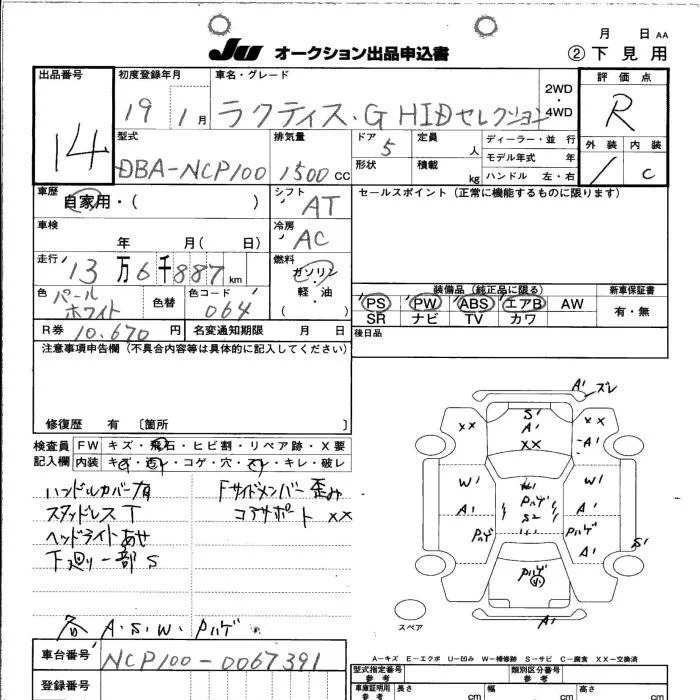 JU オークション出品申込書
月 日 AA
② 下見用
出品番号 14
初度登録年月 19 1月
車名・グレード ラクティス・G HIDセレクション
2WD
4WD
評価点 R
外装 内装
1 C
型式 DBA-NCP100
排気量 1500 CC
ドア 5
形状
定員 人
積載 kg
ディーラー・並行
モデル年式 年
ハンドル 左・右
車歴 自家用・( )
シフト AT
セールスポイント (正常に機能するものに限ります)
車検 年 月( 日)
冷房 AC
走行 13万6千887km
燃料 ガソリン・軽・油 ( )
色 パールホワイト
色替
色コード 064
装備品 (純正品に限る)
PS PW ABS エアB AW
SR ナビ TV カワ
新車保証書
有・無
R券 10.670円
名変通知期限 月 日
後日品
注意事項申告欄 (不具合内容等は具体的に記入してください)
修復歴 有 〔箇所 〕
検査員記入欄
FW キズ・飛石・ヒビ割・リペア跡・X要
内装 キズ・汚レ・コゲ・穴・スレ・キレ・破レ
ハンドルカバー有
スタッドレスT
ヘッドライトあせ
下廻り一部S
Fサイドメンバー歪み
コアサポート XX
各 A.S.W.Pハゲ
A' ズレ
S'
A'
XX
XX
XX
A'
W'
A'
Pハゲ
Pハゲ
S2
W'
A'
Pハゲ
A'
S'
Pハゲ
A'
スペア
A-キズ E-エクボ U-凹み W-補修跡 S-サビ C-腐食 XX-交換済
車台番号 NCP100-0067391
登録番号
型式指定番号 参考
類別区分番号 参考
車庫証明用 参考
長さ cm
幅 cm
高さ cm